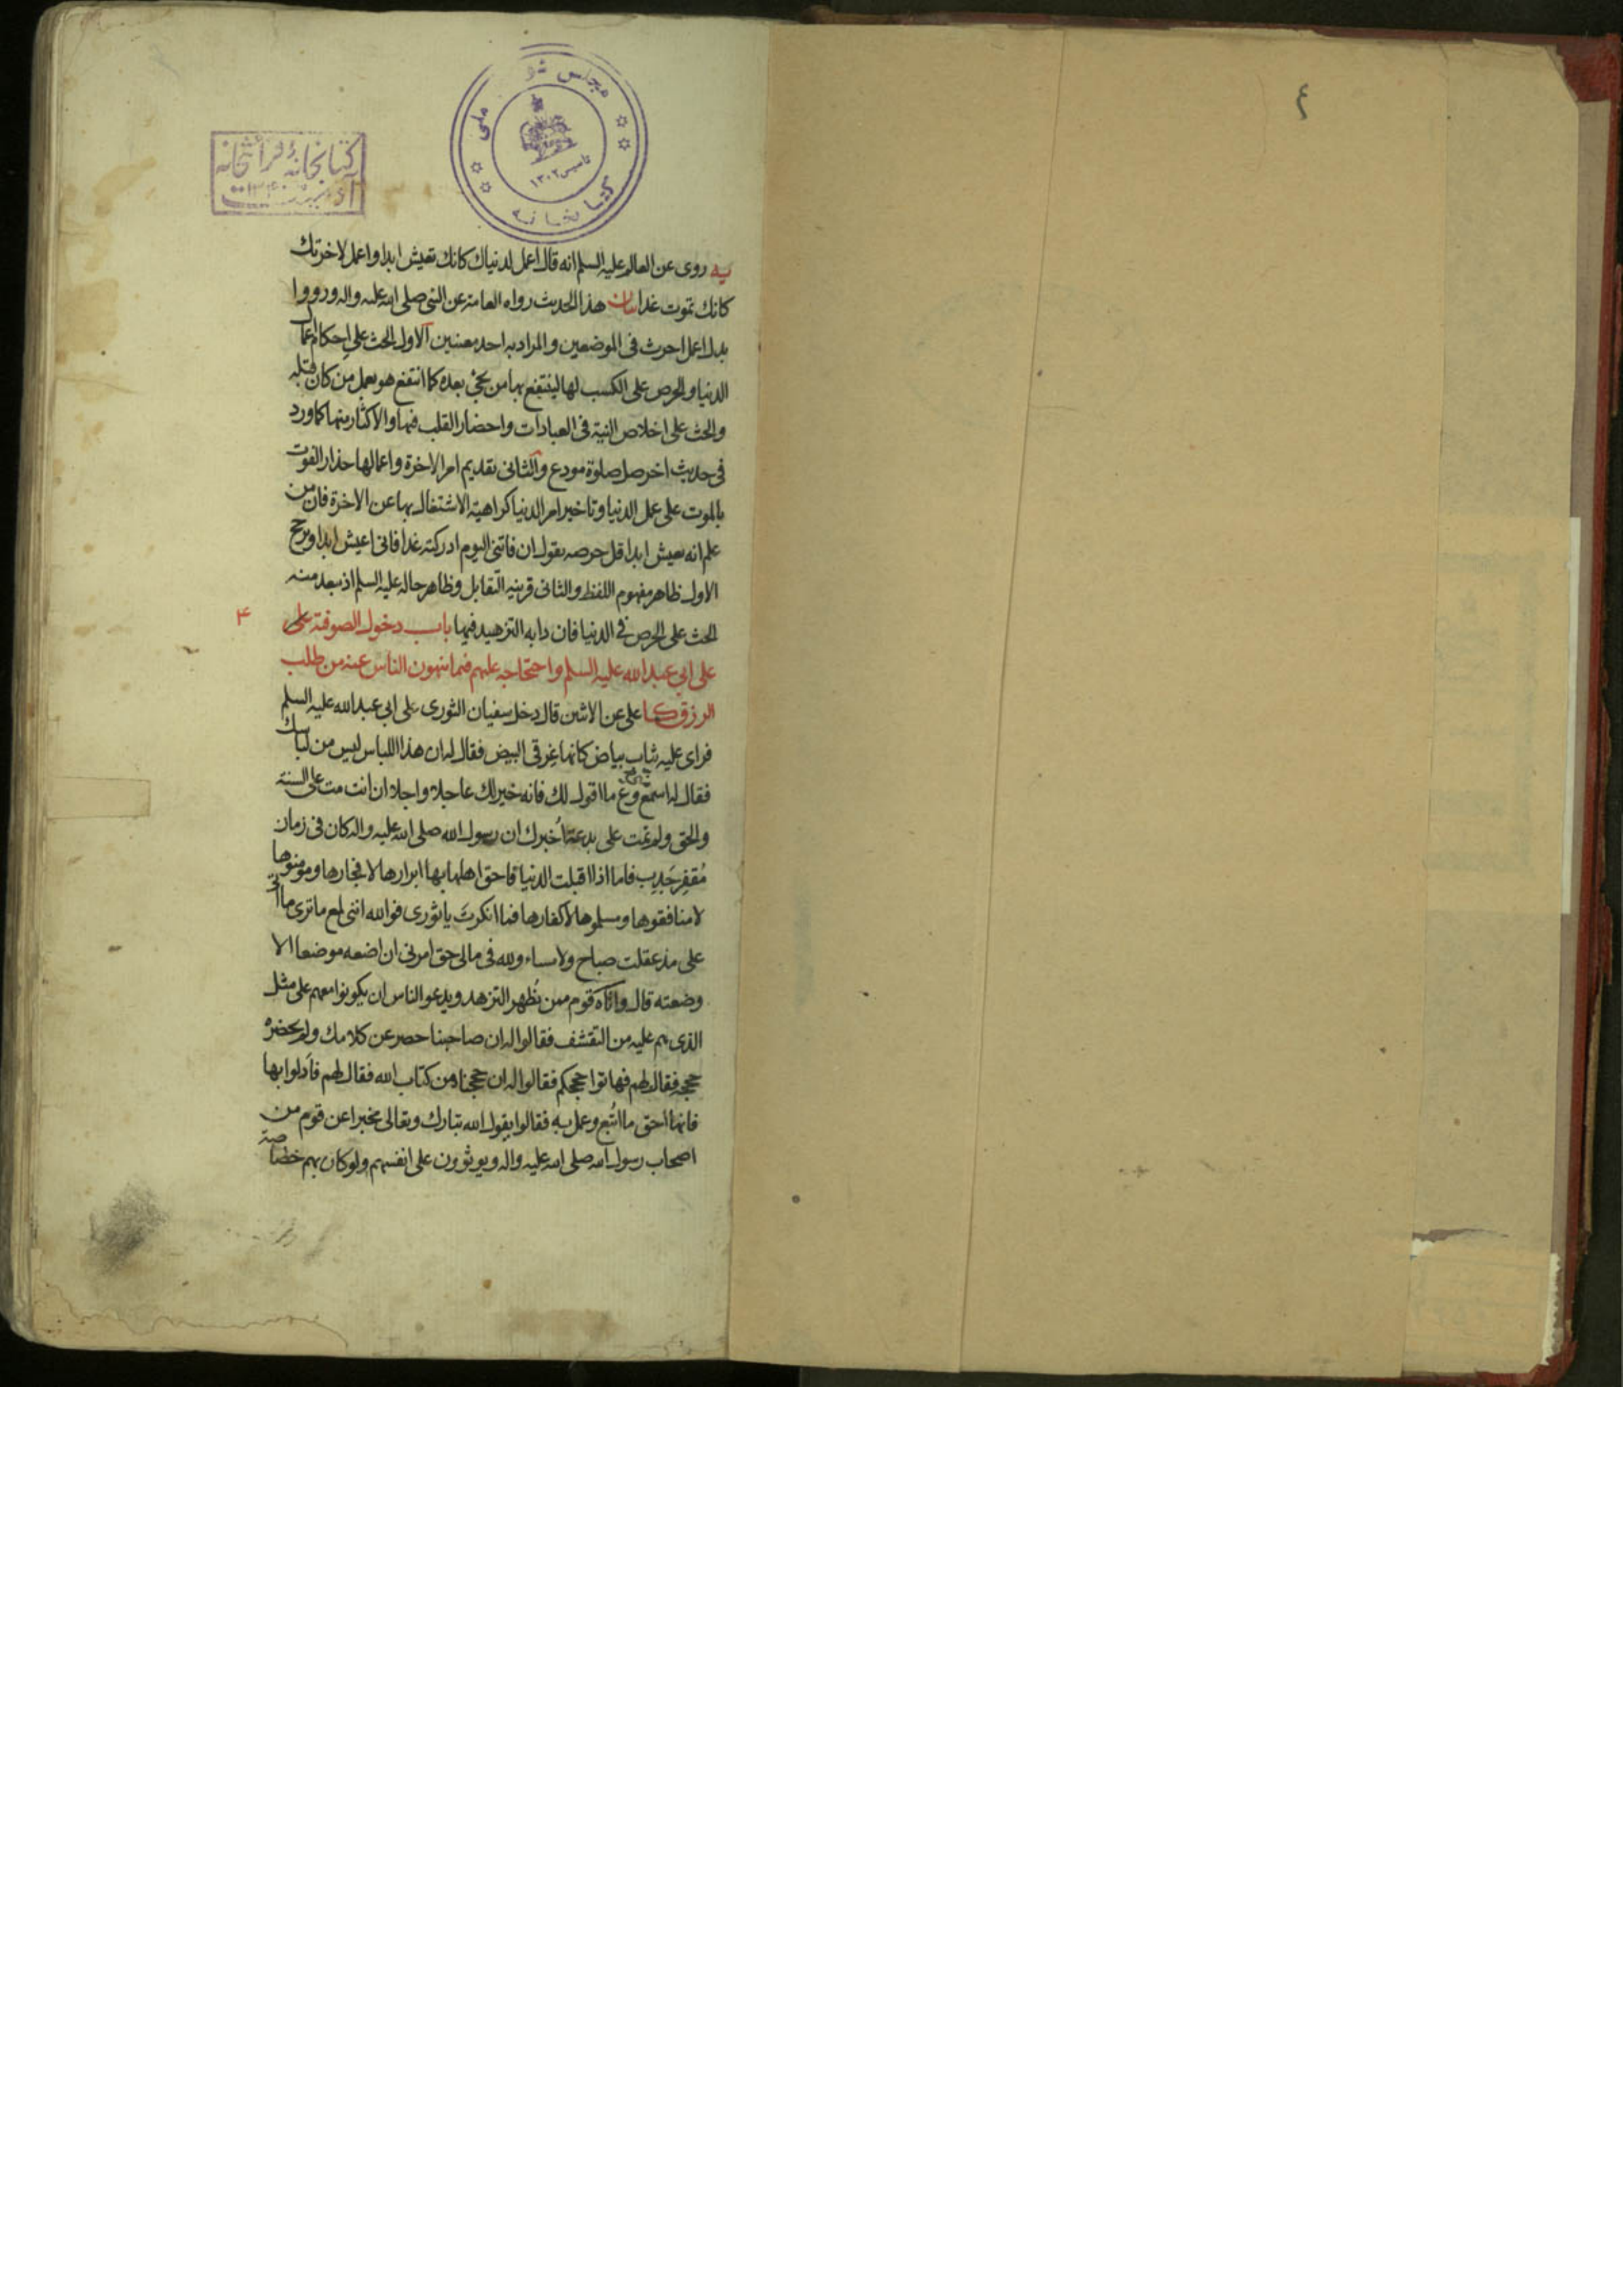 ٤
مجلس شو
ملی
تاسیس ١٣٠٢
کتابخانه
کتابخانهٔ قرائتخانه
یه روی عن العالم علیه السلم انه قال اعمل لدنیاك كانك تعیش ابدا واعمل لاخرتك
كانك تموت غدا بیان هذا الحدیث رواه العامة عن النبی صلی الله علیه واله ورووا
بدل اعمل احرث فی الموضعین والمراد به احد معنیین الاول الحث علی اِحكام اعمال
الدنیا والحرص علی الكسب لها لینتفع بها من یجئ بعده كما انتفع هو بعمل مَن كان قبله
والحث علی اخلاص النیة فی العبادات واحضار القلب فیها والاكثار منها كما ورد
فی حدیث اخر صل صلوة مودع والثانی تقدیم امر الاخرة واعمالها حذار الفوت
بالموت علی عمل الدنیا وتاخیر امر الدنیا كراهیة الاشتغال بها عن الاخرة فان من
علم انه یعیش ابدا قل حرصه بقول ان فاتنی الیوم ادركته غدا فانی اعیش ابدا ویرجح
الاول ظاهر مفهوم اللفظ والثانی قرینیه التقابل وظاهر حاله علیه السلم اذ یبعد منه
الحث علی الحرص فی الدنیا فان دابه التزهید فیها باب دخول الصوفیة علی
۴
علی ابی عبد الله علیه السلم واحتجاجه علیهم فیما ینهون الناس عنه من طلب
الرزق كا علی عن الاثنین قال دخل سفیان الثوری علی ابی عبد الله علیه السلم
فرای علیه ثیاب بیاض كانها غِرقی البیض فقال له ان هذا اللباس لیس من لباسك
فقال له اسمع وعِ ما اقول لك فانه خیر لك عاجلا واجلا ان انت مت علی السنة
والحق ولم تمت علی بدعة اُخبرك ان رسول الله صلی الله علیه واله كان فی زمان
مُقفِر جَدِیب فاما اذا اقبلت الدنیا فاحق اهلها بها ابرارها لا فجارها ومومنوها
لا منافقوها ومسلموها لا كفارها فما انكرتَ یا ثوری فوالله اننی لمع ما تری ما اتی
علی مذ عقلت صباح ولا مساء ولله فی مالی حق امرنی ان اضعه موضعا الا
وضعته قال واتاه قوم ممن یُظهر التزهد ویدعو الناس ان یكونوا معهم علی مثل
الذی هم علیه من التقشف فقالوا له ان صاحبنا حصر عن كلامك ولم یحضره
حججه فقال لهم فهاتوا حججكم فقالوا له ان حججنا من كتاب الله فقال لهم فاَدلوا بها
فانها احق ما اتُبع وعمل به فقالوا یقول الله تبارك وتعالی مخبرا عن قوم من
اصحاب رسول الله صلی الله علیه واله ویوثرون علی انفسهم ولو كان بهم خصاصة